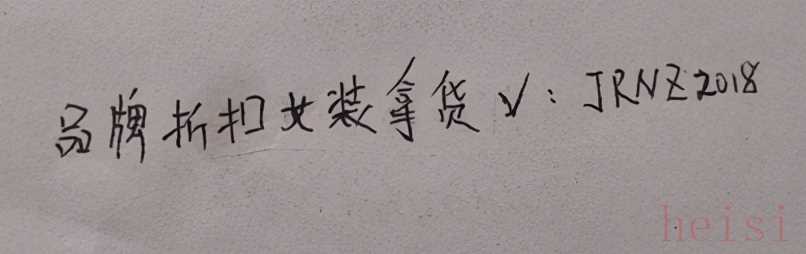 品牌折扣女装拿货√：JRNZ2018
heisi